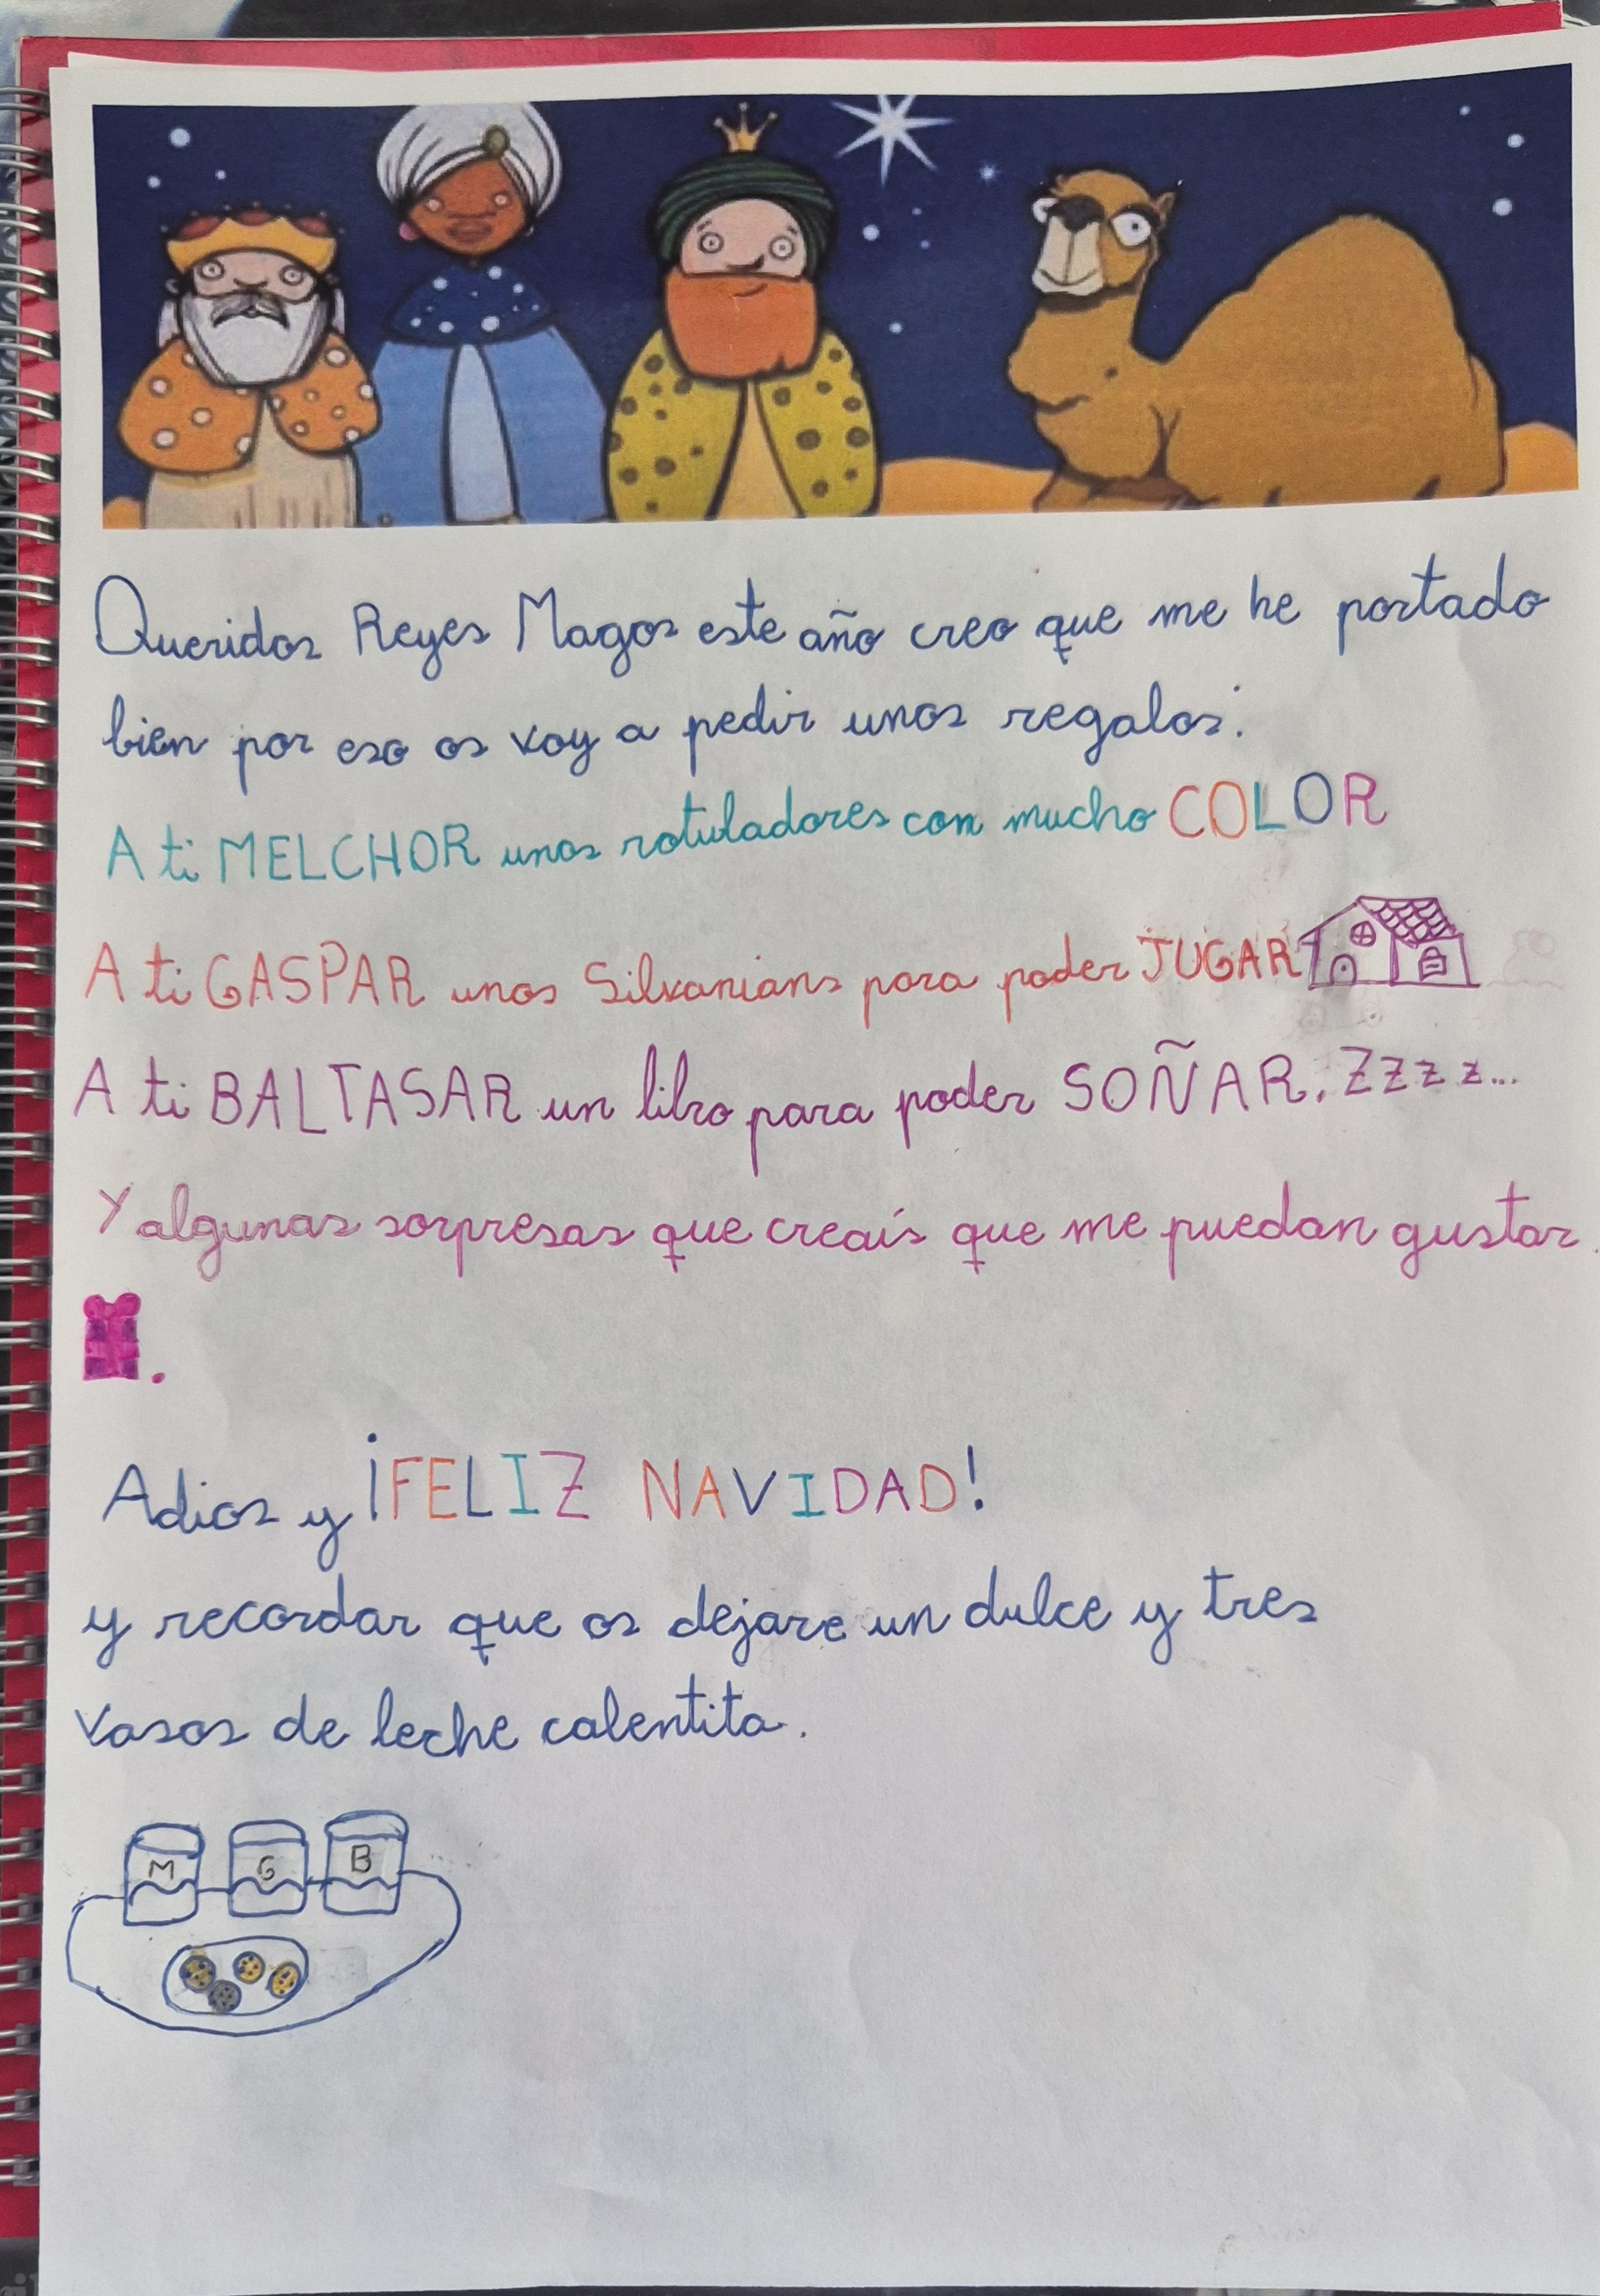 Queridos Reyes Magos este año creo que me he portado
bien por eso os voy a pedir unos regalos:
A ti MELCHOR unos rotuladores con mucho COLOR
A ti GASPAR unos Silvanians para poder JUGAR
A ti BALTASAR un libro para poder SOÑAR. ZZzz...
Y algunas sorpresas que creaís que me puedan gustar
.
Adios y ¡FELIZ NAVIDAD!
y recordar que os dejare un dulce y tres
vasos de leche calentita.
M G B